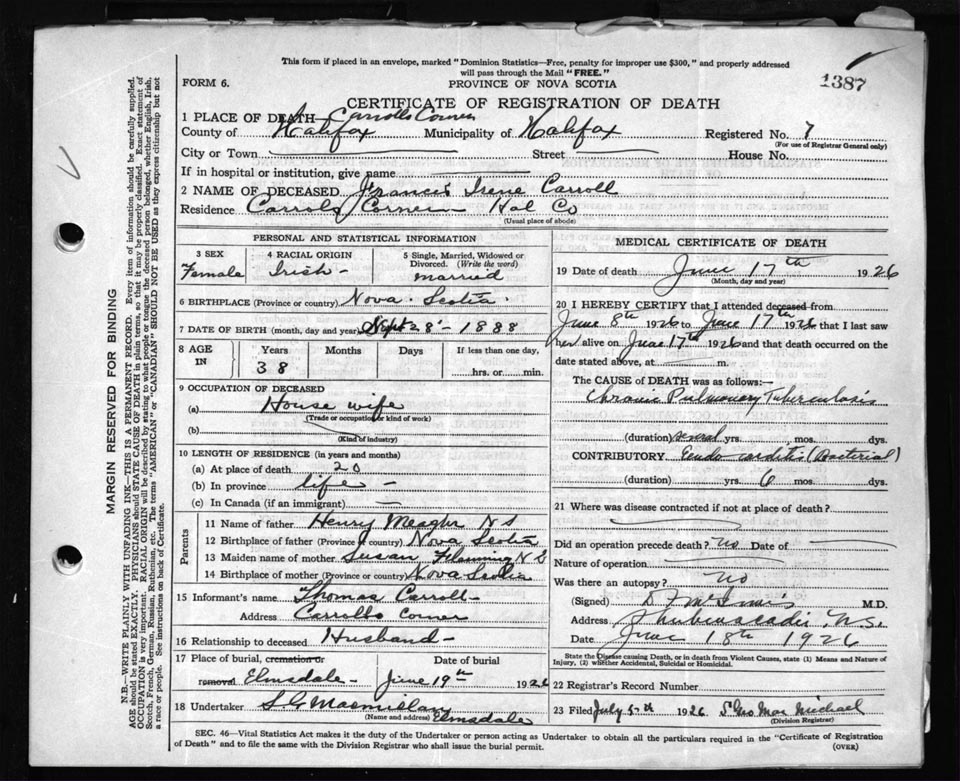 This form if placed in an envelope, marked "Dominion Statistics—Free, penalty for improper use $300," and properly addressed
will pass through the Mail "FREE."
1387
FORM 6.
PROVINCE OF NOVA SCOTIA
CERTIFICATE OF REGISTRATION OF DEATH
1 PLACE OF DEATH— Carrolls Corner
County of Halifax Municipality of Halifax Registered No. 7
(For use of Registrar General only)
City or Town Street House No.
If in hospital or institution, give name
2 NAME OF DECEASED Francis Irene Carroll
Residence Carrols Corner Hal Co
(Usual place of abode)
PERSONAL AND STATISTICAL INFORMATION
3 SEX
Female
4 RACIAL ORIGIN
Irish -
5 Single, Married, Widowed or
Divorced. (Write the word)
married
6 BIRTHPLACE (Province or country) Nova Scotia
7 DATE OF BIRTH (month, day and year) Sept 28 - 1888
8 AGE IN
Years Months Days If less than one day,
38 hrs. or min.
9 OCCUPATION OF DECEASED
(a) House wife
(Trade or occupation or kind of work)
(b)
(Kind of industry)
10 LENGTH OF RESIDENCE (in years and months)
(a) At place of death 20
(b) In province life -
(c) In Canada (if an immigrant) -
Parents
11 Name of father Henry Meagher N S
12 Birthplace of father (Province or country) Nova Scotia
13 Maiden name of mother Susan Flemming N S
14 Birthplace of mother (Province or country) Nova Scotia
15 Informant's name Thomas Carroll -
Address Carrolls Corner
16 Relationship to deceased Husband -
17 Place of burial, cremation or Date of burial
removal Elmsdale - June 19th 1926
18 Undertaker S G Macmillan
(Name and address) Elmsdale
MEDICAL CERTIFICATE OF DEATH
19 Date of death June 17th 1926
(Month, day and year)
20 I HEREBY CERTIFY that I attended deceased from
June 8th 1926 to June 17th 1926 that I last saw
her alive on June 17th 1926 and that death occurred on the
date stated above, at m.
The CAUSE OF DEATH was as follows:—
Chronic Pulmonary Tuberculosis
(duration) several yrs. mos. dys.
CONTRIBUTORY Endo carditis (Bacterial)
(duration) yrs. 6 mos. dys.
21 Where was disease contracted if not at place of death?
Did an operation precede death? no Date of
Nature of operation
Was there an autopsy? no
(Signed) M.D.
Address Shubenacadie, N.S.
Date June 18th 1926
State the Disease causing Death, or in death from Violent Causes, state (1) Means and Nature of
Injury, (2) whether Accidental, Suicidal or Homicidal.
22 Registrar's Record Number
23 Filed July 5th 1926 Mac Michael
(Division Registrar)
SEC. 46—Vital Statistics Act makes it the duty of the Undertaker or person acting as Undertaker to obtain all the particulars required in the "Certificate of Registration
of Death" and to file the same with the Division Registrar who shall issue the burial permit.
(OVER)
MARGIN RESERVED FOR BINDING
N.B.—WRITE PLAINLY WITH UNFADING INK—THIS IS A PERMANENT RECORD. Every item of information should be carefully supplied.
AGE should be stated EXACTLY. PHYSICIANS should STATE CAUSE OF DEATH in plain terms, so that it may be properly classified. Exact statement of
OCCUPATION is very important. RACIAL ORIGIN will be described by stating to what people or tongue the deceased person belonged, whether English, Irish,
Scotch, French, German, Russian, Ruthenian, etc. The terms "AMERICAN" or "CANADIAN" SHOULD NOT BE USED as they express citizenship but not
a race or people. See instructions on back of Certificate.